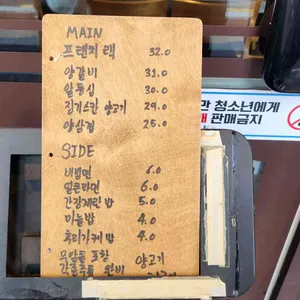 MAIN
프렌치 랙 32.0
양갈비 31.0
알등심 30.0
징기스칸 양고기 29.0
양삼겹 25.0
SIDE
비빔면 6.0
얼큰라면 6.0
간장계란밥 5.0
마늘밥 4.0
후리가케밥 4.0
모알몰 포장
완비
양고기
만 청소년에게
판매금지